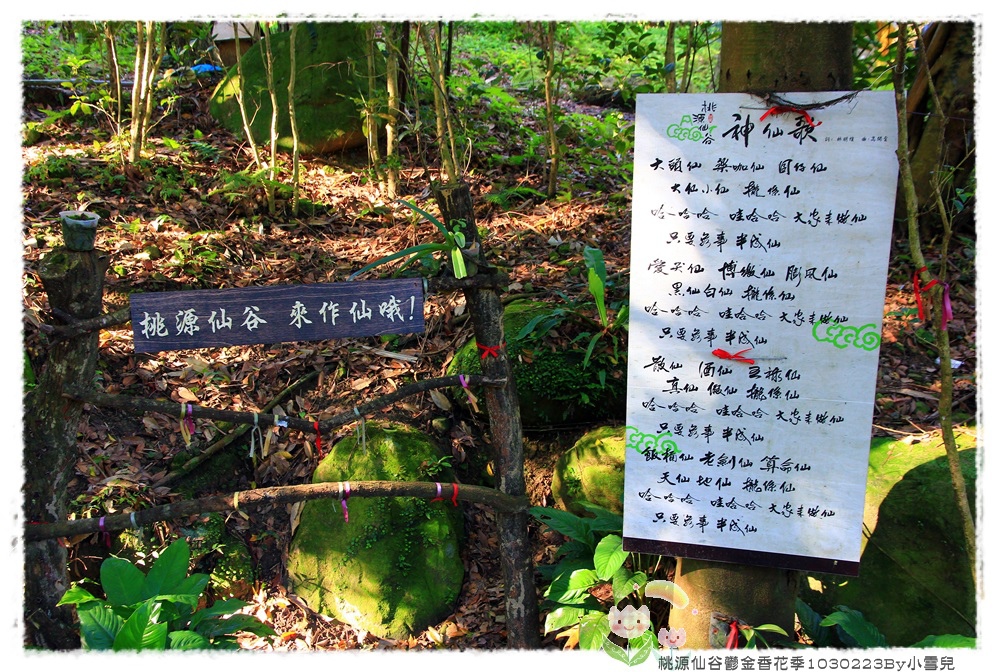 桃源仙谷 來作仙哦!
桃源仙谷
神仙歌
大頭仙 樂咖仙 囝仔仙
大仙小仙 攏係仙
哈哈哈 哇哈哈 大家來做仙
只要無事 半成仙
愛哭仙 博繳仙 膨風仙
黑仙白仙 攏係仙
哈哈哈 哇哈哈 大家來做仙
只要無事 半成仙
散仙 酒仙
真仙 假仙 攏係仙
哈哈哈 哇哈哈 大家來做仙
只要無事 半成仙
飯桶仙 老創仙 算命仙
天仙 地仙 攏係仙
哈哈哈 哇哈哈 大家來做仙
只要無事 半成仙
桃源仙谷鬱金香花季1030223By小雪兒